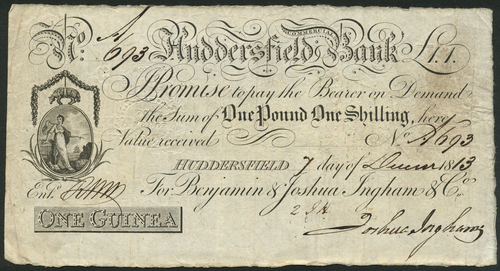 No. A 693 Huddersfield COMMERCIAL Bank £1.1.
I Promise to pay the Bearer on Demand
the Sum of One Pound One Shilling, here
Value received No A 693
HUDDERSFIELD 7 day of Decemr 1813
Entd.
For Benjamin & Joshua Ingham & Co.
ONE GUINEA
Joshua Ingham